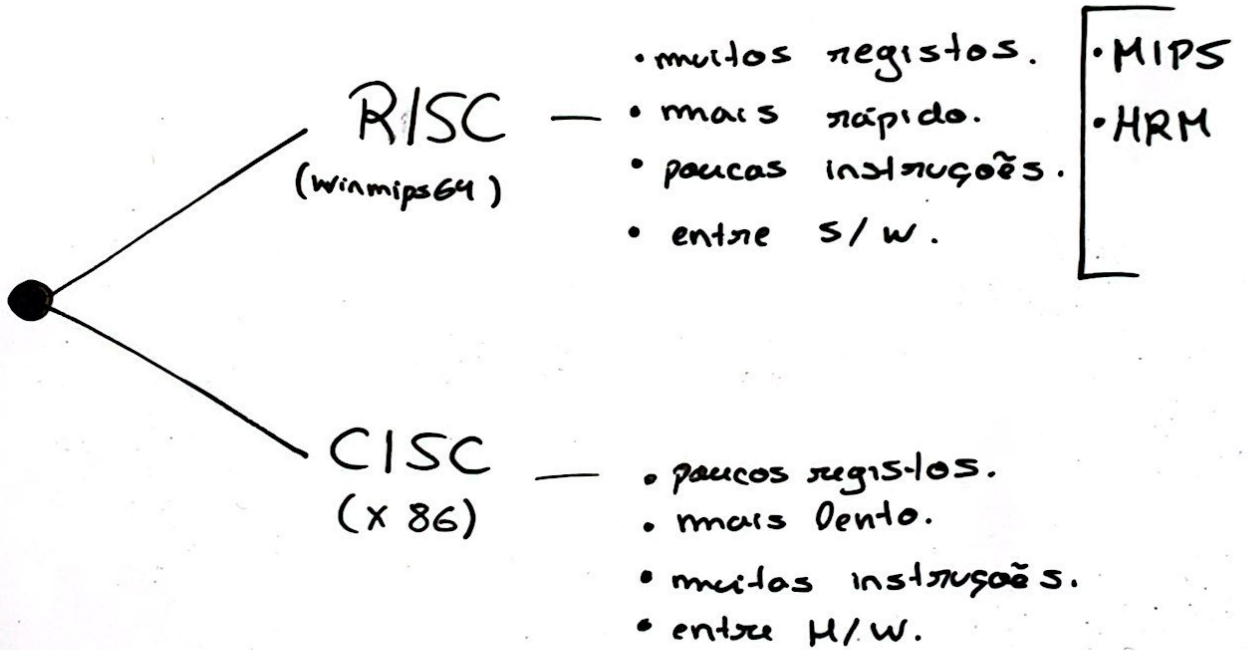 RISC
(winmips64)
• muitos registos.
• mais rápido.
• poucas instruções.
• entre S/W.
• MIPS
• ARM
CISC
(x86)
• poucos registos.
• mais lento.
• muitas instruções.
• entre H/W.